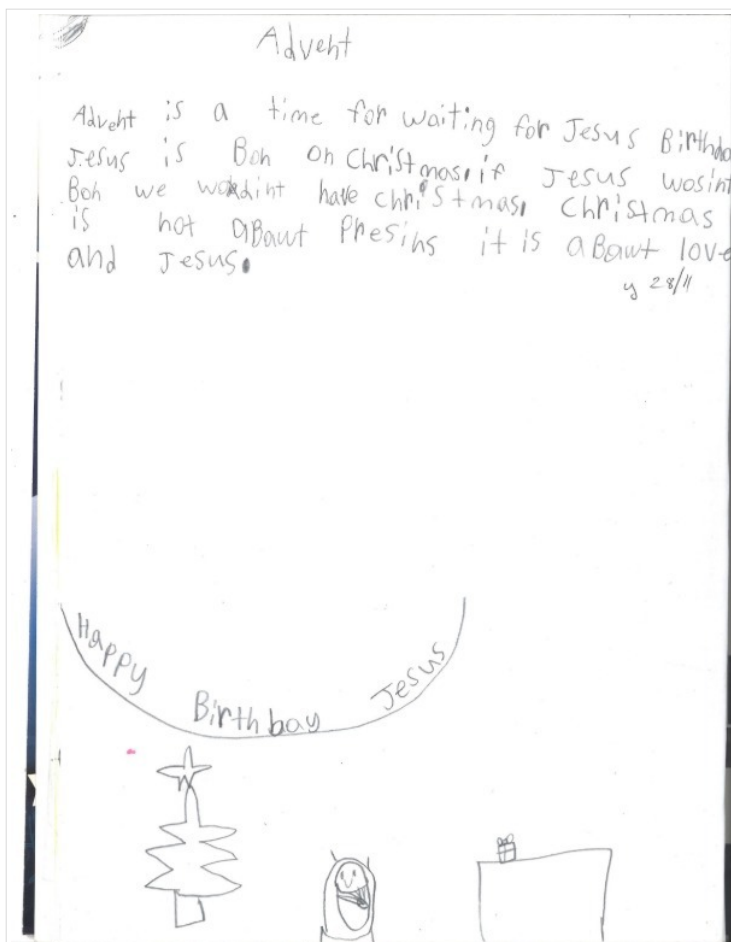 Advent
Advent is a time for waiting for Jesus Birthda
Jesus is Boh on Christmas, if Jesus wosint
Boh we wordint have christmas, Christmas
is not aBawt Presihs it is aBawt love
and Jesus.
y 28/11
Happy Birthbay Jesus